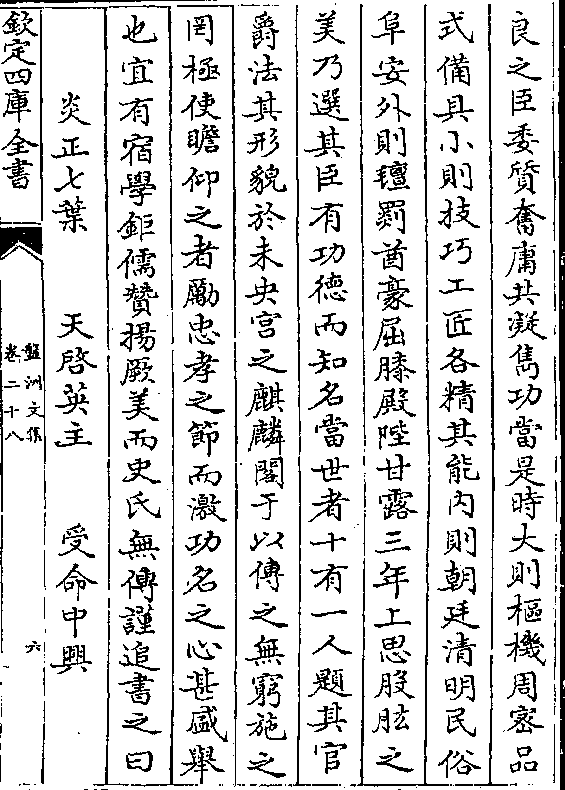 良之臣委質奮庸共凝雋功當是時大則樞機周密品
式備具小則技巧工匠各精其能内則朝廷清明民俗
阜安外則氊罽酋豪屈膝殿陛甘露三年上思股肱之
美乃選其臣有功德而知名當世者十有一人題其官
爵法其形貌於未央宫之麒麟閣于以傳之無窮施之
罔極使瞻仰之者勵忠孝之節而激功名之心甚盛舉
也宜有宿學鉅儒贊揚厥美而史氏無傳謹追書之曰
炎正七葉 天啓英主 受命中興
欽定四庫全書
盤洲文集
卷二十八
六